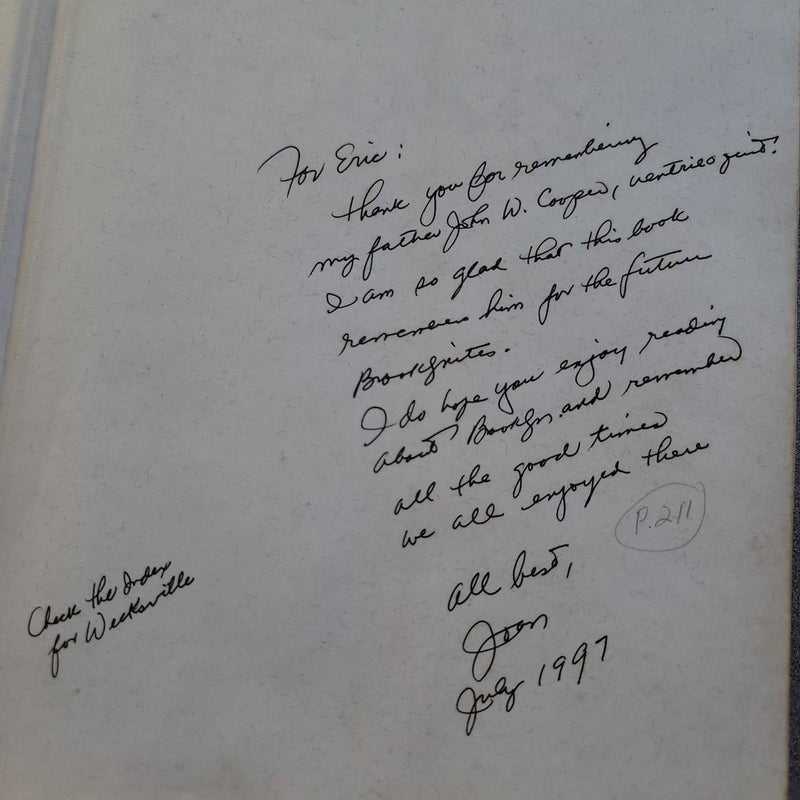 For Eric:
thank you for remembering
my father John W. Cooper, ventriloquist.
I am so glad that this book
remembers him for the future
Brooklynites.
I do hope you enjoy reading
about Brooklyn and remember
all the good times
we all enjoyed there
P. 211
All best,
Joan
July 1997
Check the Index
for Weeksville